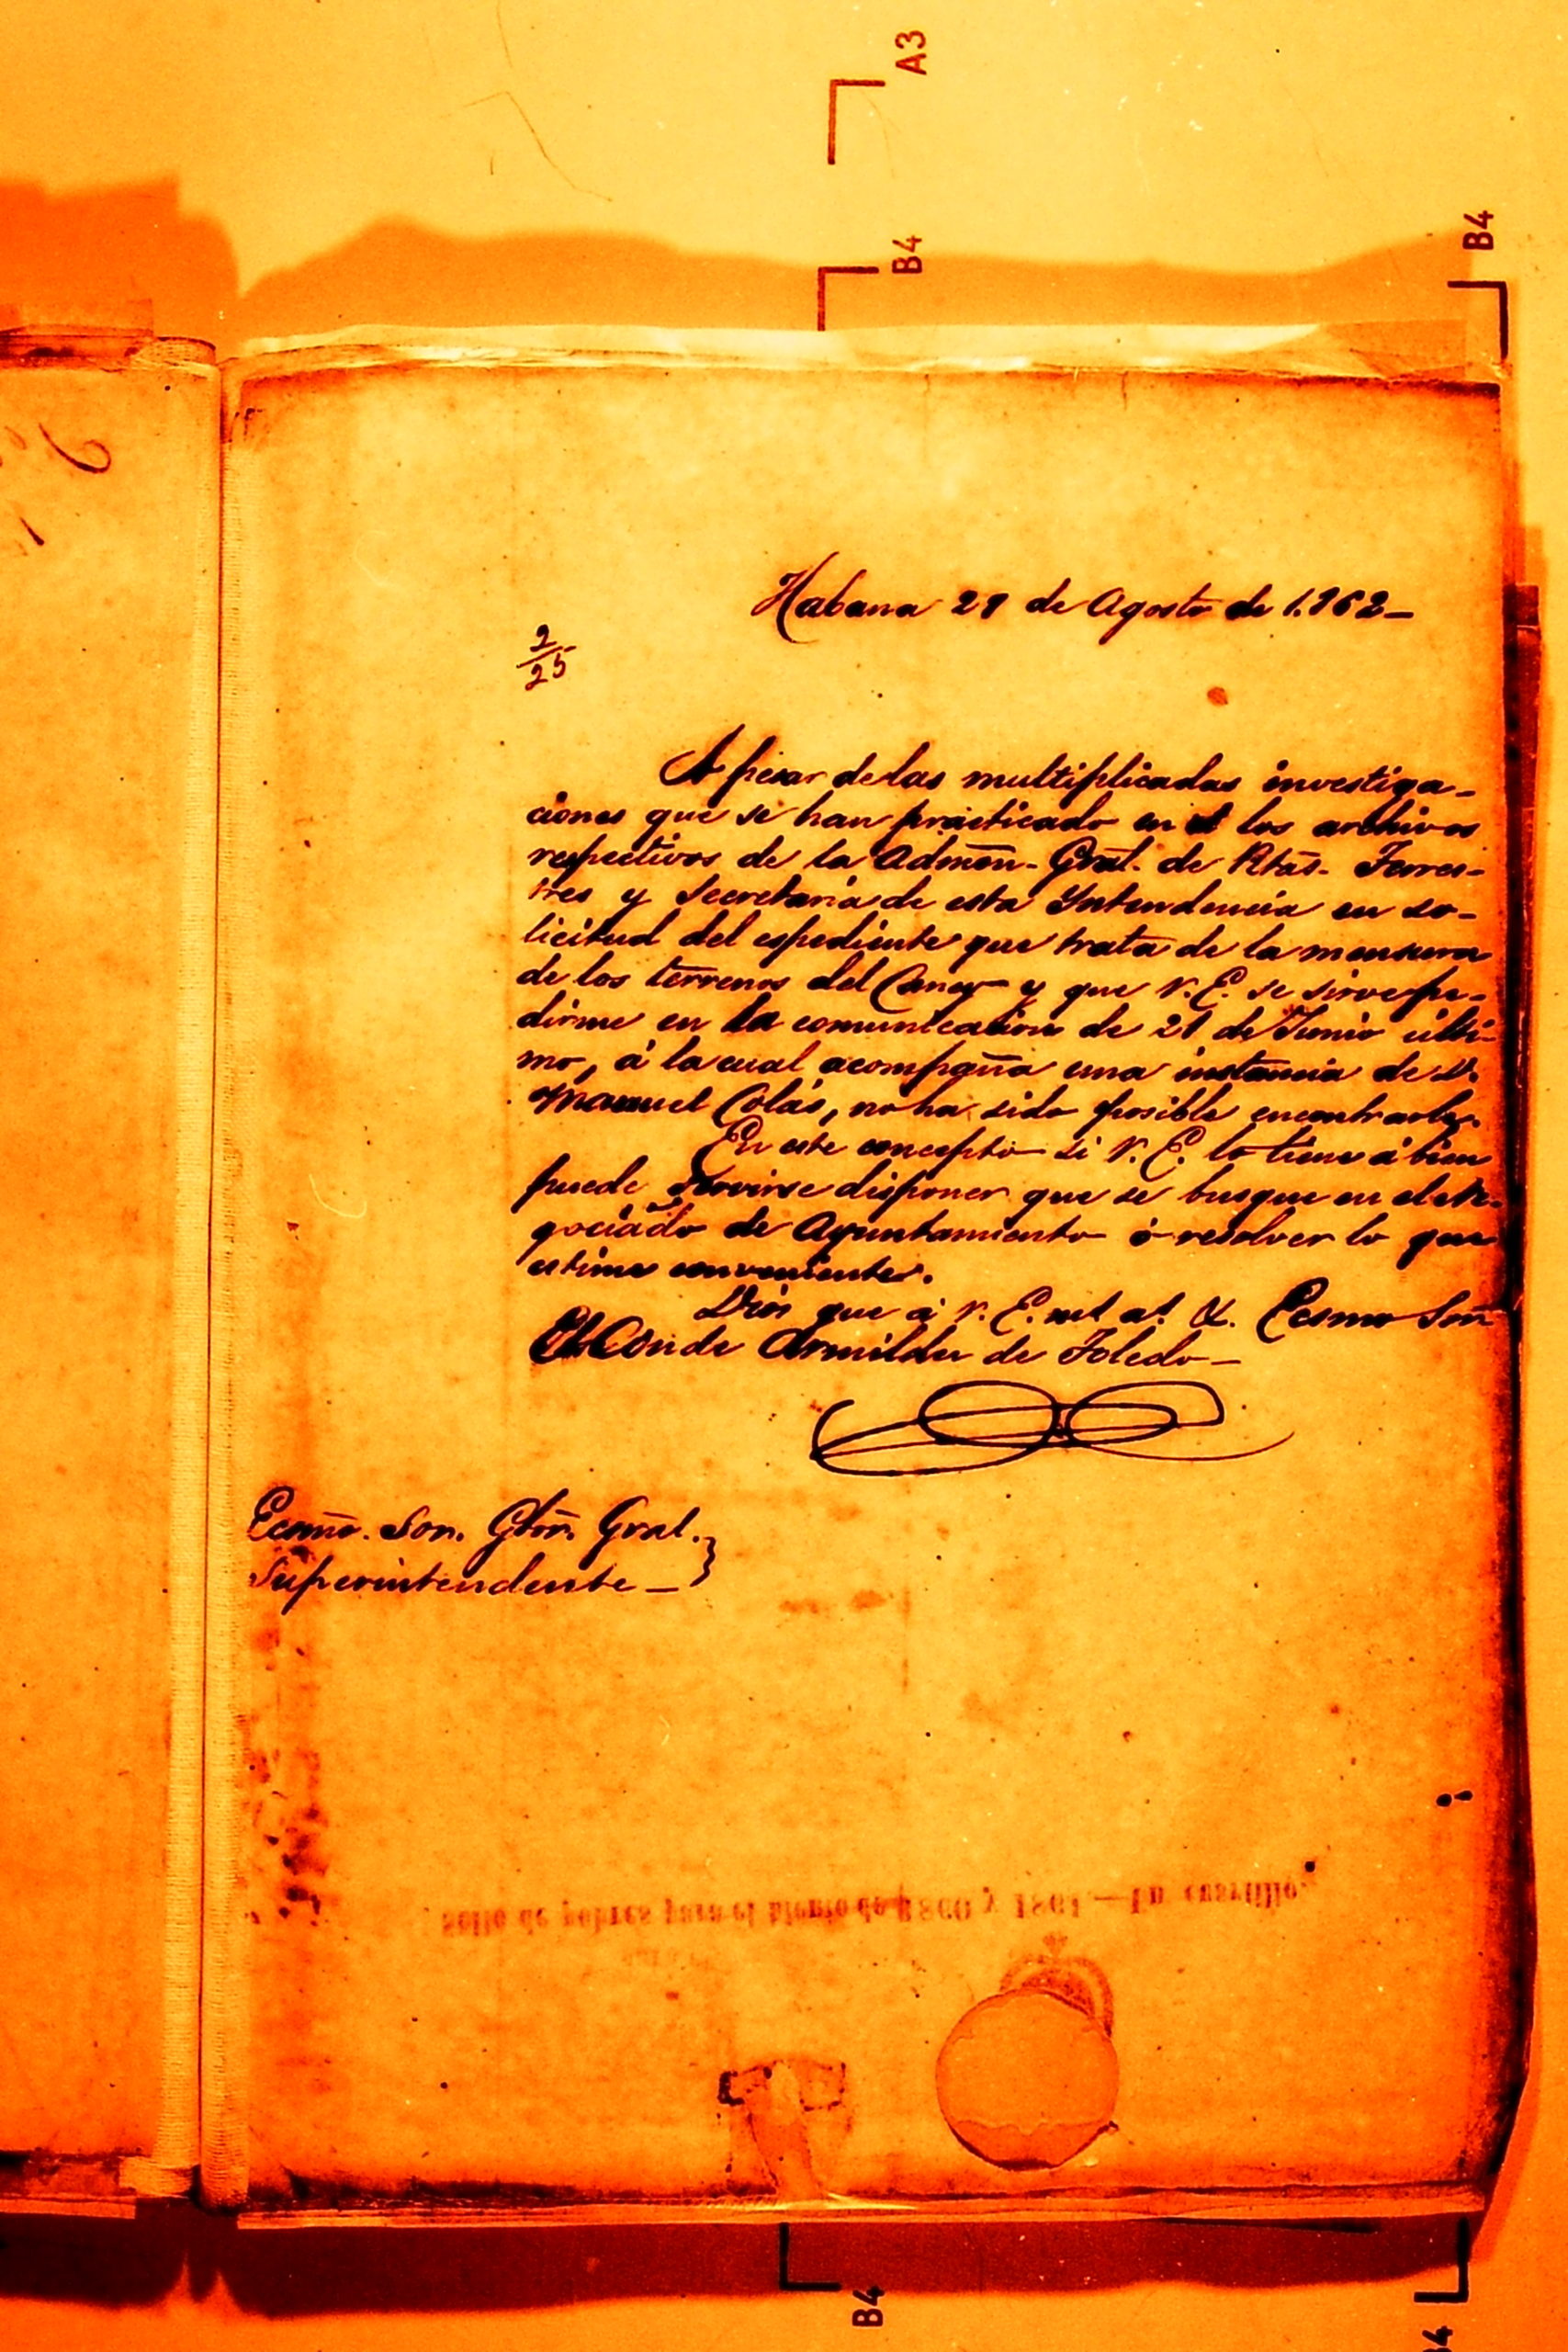 A3
B4
B4
Habana 29 de Agosto de 1.862_
2/25
A pesar de las multiplicadas investiga-
ciones que se han practicado en los archivos
respectivos de la Admon. Gral. de Rtas. Terres-
tres y Secretaría de esta Yntendencia en so-
licitud del espediente que trata de la mensura
de los terrenos del Caney y que V. E. se sirve pe-
dirme en la comunicacion de 21 de Junio ulti-
mo, á la cual acompaña una instancia de D.
Manuel Colás, no ha sido posible encontrarlo.
En este concepto si V. E. lo tiene á bien
puede servirse disponer que se busque en el Ne-
gociado de Ayuntamiento ó resolver lo que
estime conveniente.
Dios gue á V. E. ms. as. &. Ecsmo Sor.
El Conde Armildez de Toledo_
Ecsmo. Sor. Gbor. Gral.
Superintendente_
Sello de pobres para el bienio de 1860 y 1861.—Un cuartillo.
B4
B4